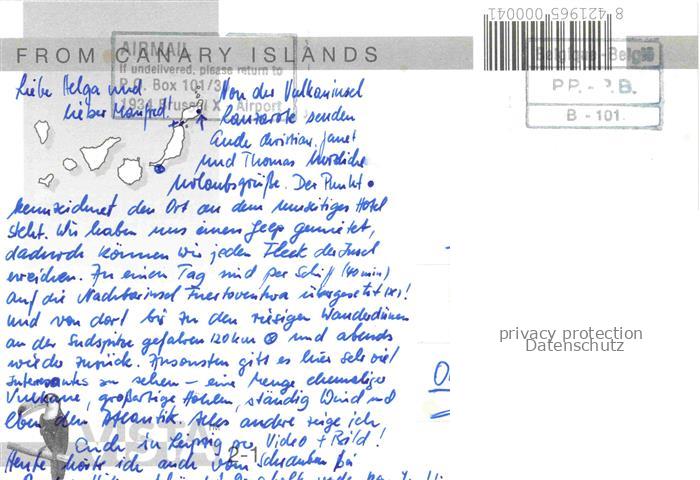 8 421965 000041
FROM CANARY ISLANDS
AIRMAIL
If undelivered, please return to
P.O. Box 101/3
1934 Brussel X Airport
Belgique-België
P.P. - P.B.
B - 101.
Liebe Helga und
lieber Manfred.
Von der Vulkaninsel
Lanzarote senden
Euch Christian, Janet
und Thomas herzliche
Urlaubsgrüße. Der Punkt •
kennzeichnet den Ort an dem unser Hotel
steht. Wir haben uns einen Jeep gemietet,
dadurch können wir jeden Fleck der Insel
erreichen. An einen Tag sind per Schiff (40 min)
auf die Nachbarinsel Fuerteventura übergesetzt (x)!
und von dort bis zu den riesigen Wanderdünen
an der Südspitze gefahren 120 km ⊗ und abends
wieder zurück. Ansonsten gibt es hier sehr viel
Interessantes zu sehen – eine Menge ehemalige
Vulkane, großartige Höhlen, ständig Wind und
eben den Atlantik. Alles andere zeige ich
Euch in Leipzig per Video + Bild!
Heute hörte ich auch vom
privacy protection
Datenschutz
VISTA
2-1